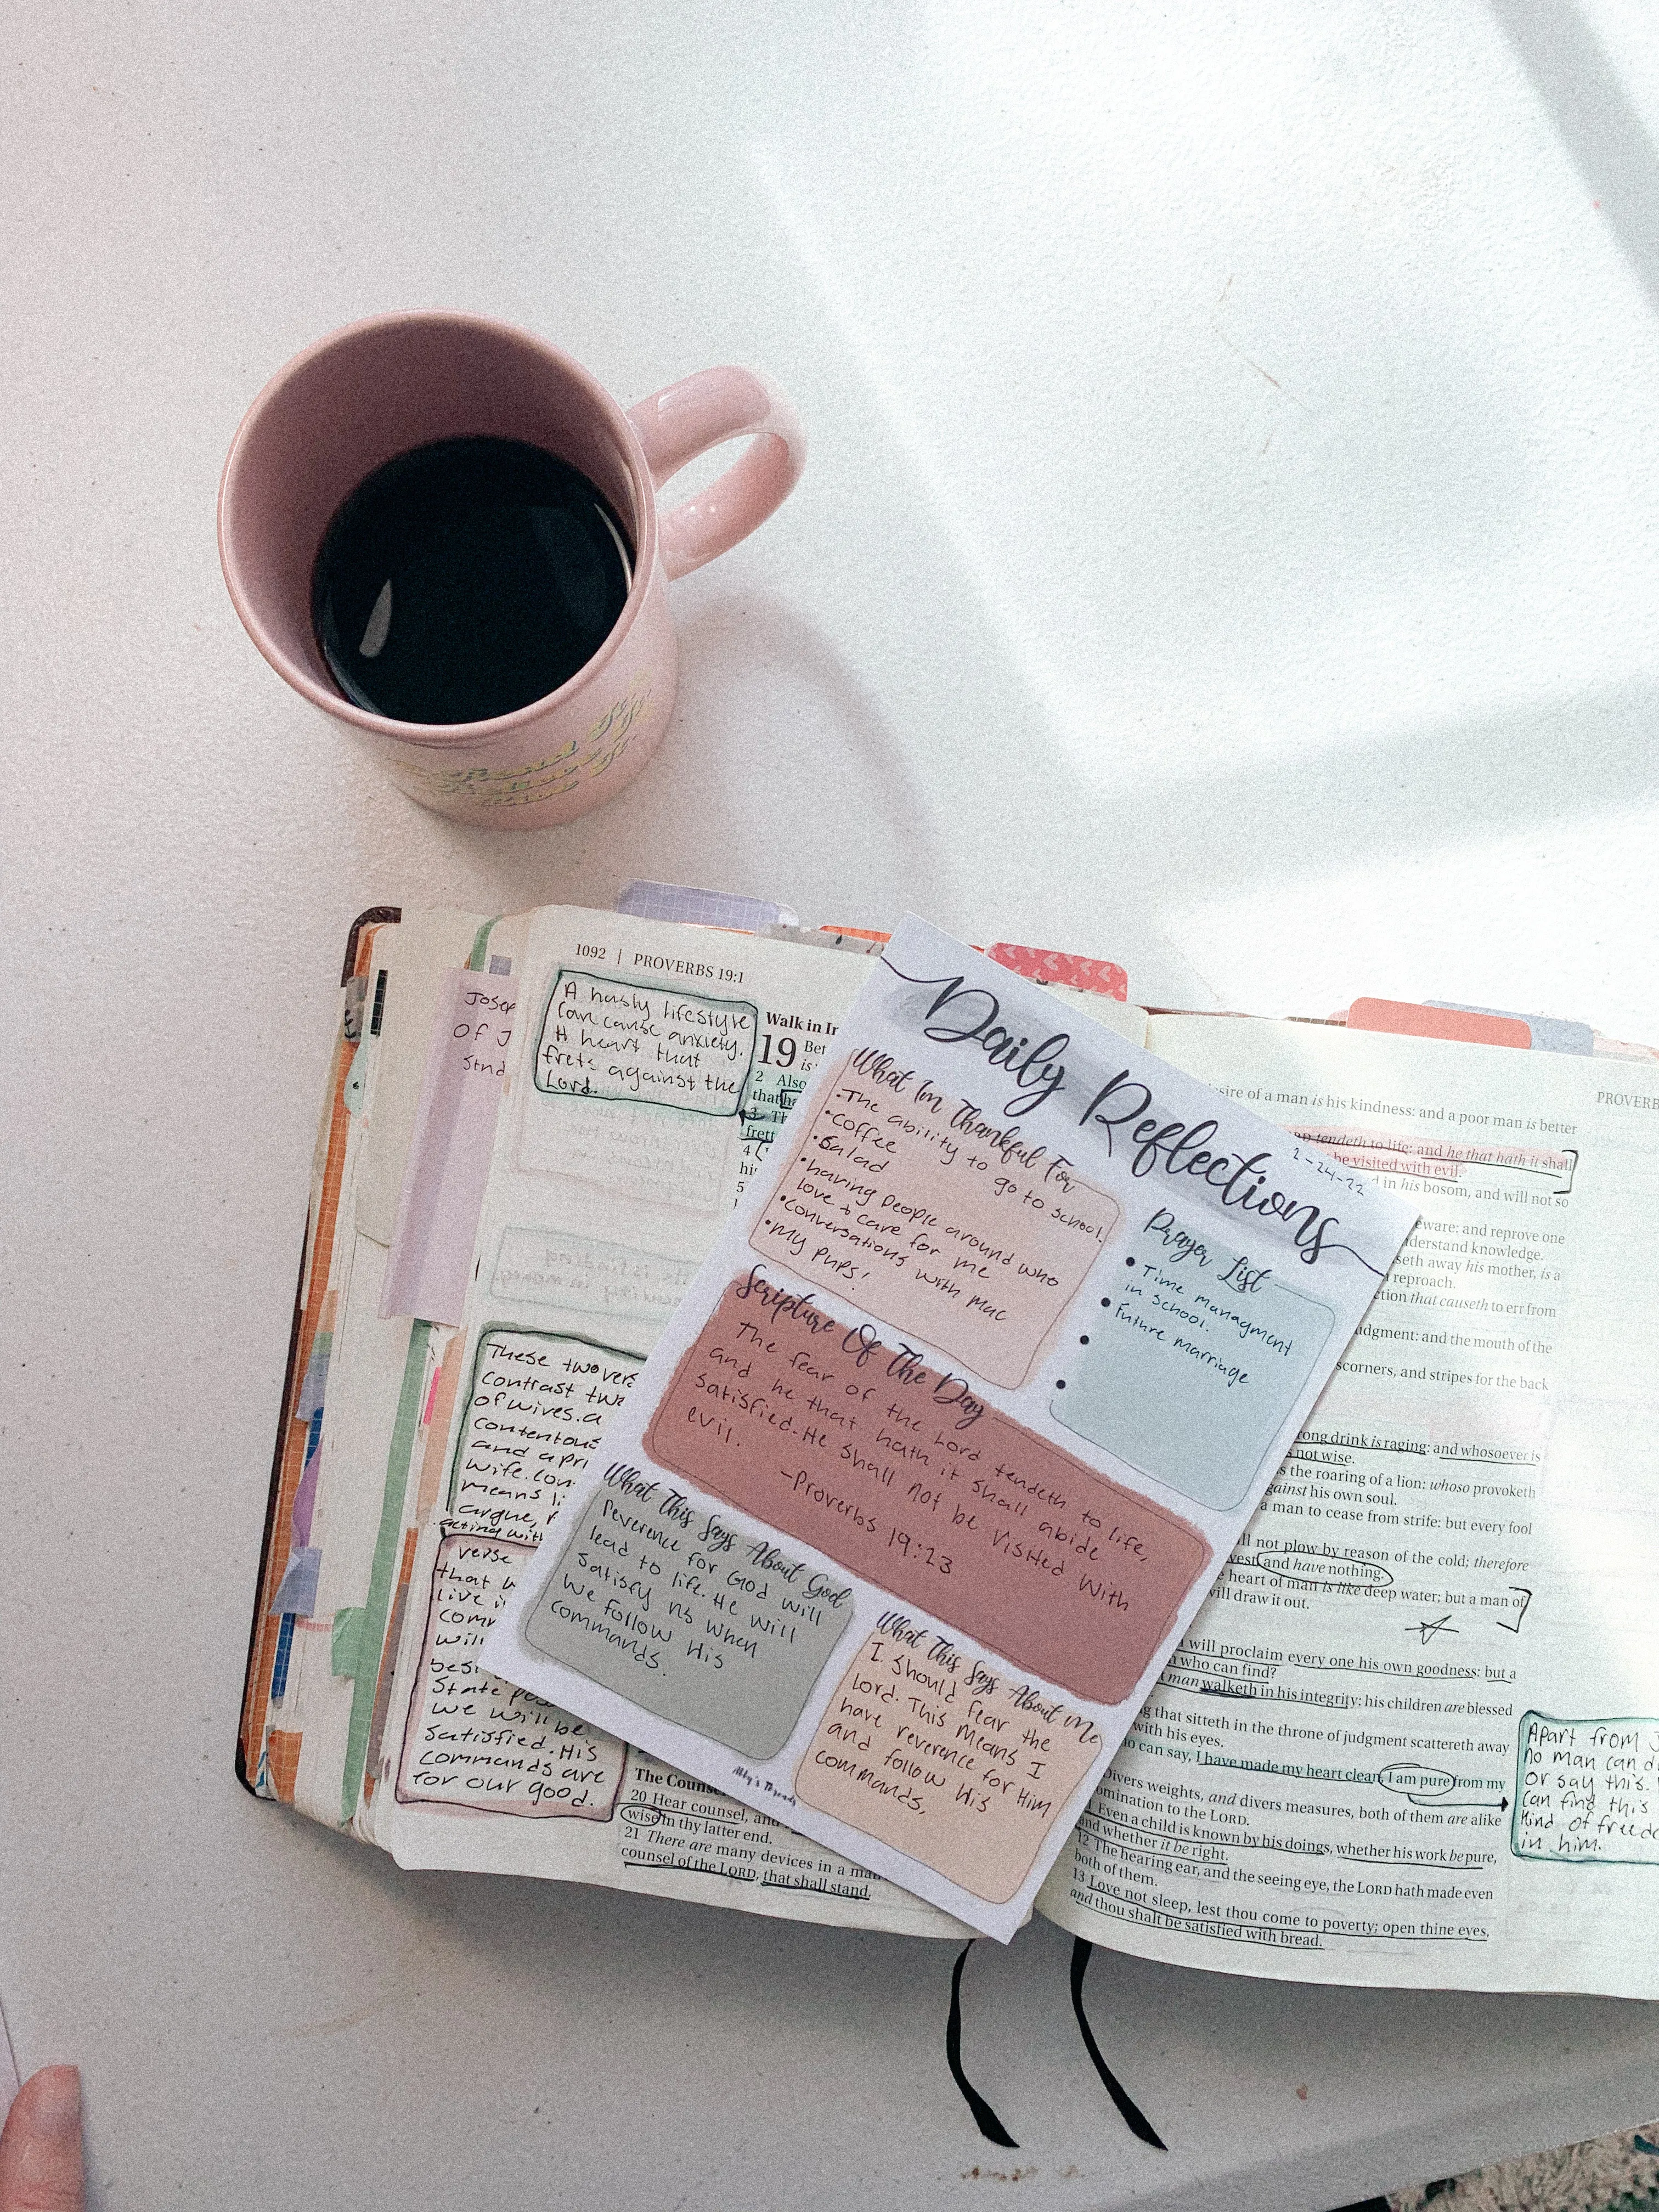 1092 | PROVERBS 19:1
A hasty lifestyle
can cause anxiety.
A heart that
frets against the
Lord.
Of J
Walk in
19
2 Also
that
3
4
5
These two
contrast
of wives. a
contentous
and a
wife.
means
argue,
acting with
verse
that
live
will
State
we will be
satisfied. His
commands are
for our good.
The
20 Hear counsel, and
wise in thy latter end.
21 There are many devices in a
counsel of the LORD, that shall stand.
Daily Reflections
2-24-22
What Im Thankful For
•The ability to go to school.
•coffee
•Salad
•having people around who
love & care for me
•conversations with mac
•my pups!
Prayer List
• Time managment
in school.
• Future marriage
Scripture Of The Day
The fear of the Lord tendeth to life,
and he that hath it shall abide
satisfied. He shall not be visited with
evil.
-Proverbs 19:23
What This Says About God
Reverence for God will
lead to life. He will
satisfy us when
we follow His
commands.
What This Says About Me
I should fear the
lord. This means I
have reverence for Him
and follow His
commands,
of a man is his kindness: and a poor man is better
tendeth to life: and he that hath it shall
be visited with evil.
in his bosom, and will not so
and reprove one
understand knowledge.
away his mother, is a
reproach.
that causeth to err from
judgment: and the mouth of the
scorners, and stripes for the back
drink is raging: and whosoever is
not wise.
the roaring of a lion: whoso provoketh
against his own soul.
a man to cease from strife: but every fool
not plow by reason of the cold; therefore
and have nothing.
heart of man is like deep water; but a man of
will draw it out.
will proclaim every one his own goodness: but a
who can find?
man walketh in his integrity: his children are blessed
that sitteth in the throne of judgment scattereth away
with his eyes.
can say, I have made my heart clean, I am pure from my
Divers weights, and divers measures, both of them are alike
to the LORD.
Even a child is known by his doings, whether his work be pure,
and whether it be right.
12 The hearing ear, and the seeing eye, the LORD hath made even
both of them.
13 Love not sleep, lest thou come to poverty; open thine eyes,
and thou shalt be satisfied with bread.
Apart from
no man can
or say this.
can find this
kind of
in him.